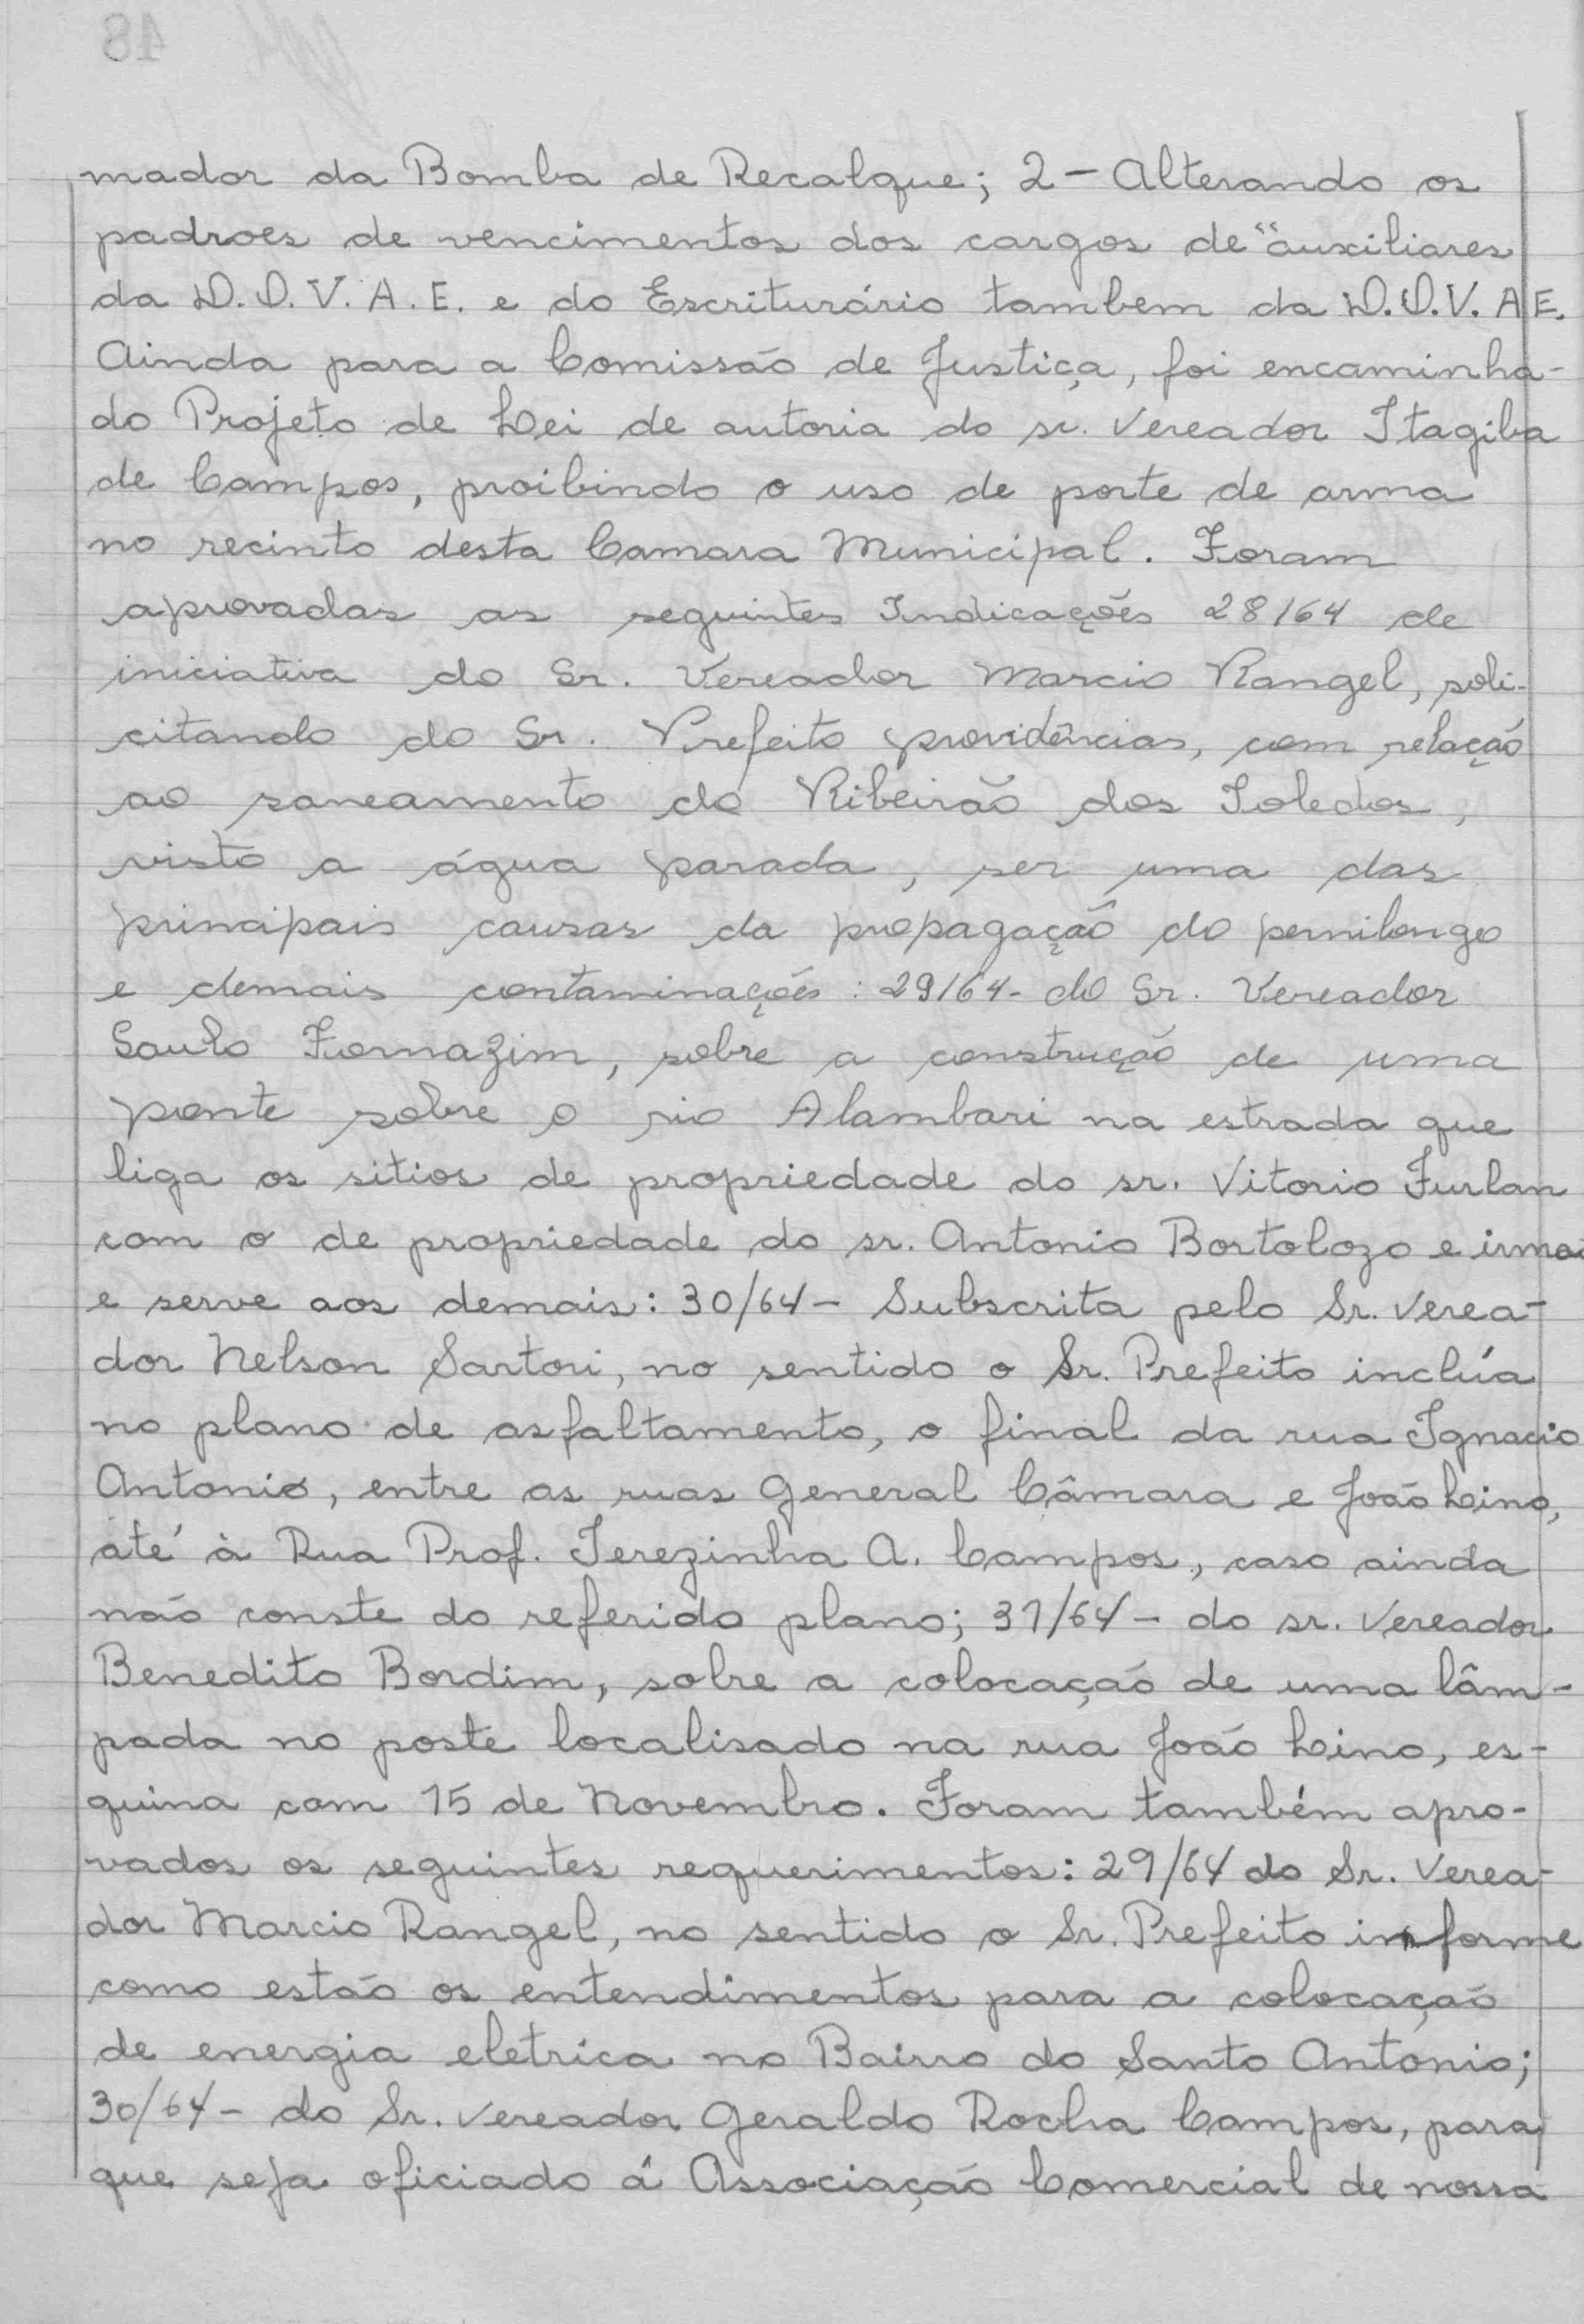 mador da Bomba de Recalque; 2 - Alterando os
padroes de vencimentos dos cargos de "auxiliares
da D.O.V.A.E. e do Escriturário tambem da D.O.V.A.E.
Ainda para a Comissão de Justiça, foi encaminha-
do Projeto de Lei de autoria do sr. Vereador Itagiba
de Campos, proibindo o uso de porte de arma
no recinto desta Camara Municipal. Foram
aprovadas as seguintes Indicações 28/64 de
iniciativa do Sr. Vereador Marcio Rangel, soli-
citando do Sr. Prefeito providências, com relação
ao saneamento do Ribeirão dos Toledos,
visto a água parada, ser uma das
principais causas da propagação do pernilongo
e demais contaminações: 29/64- do Sr. Vereador
Saulo Fornazim, sobre a construção de uma
ponte sobre o rio Alambari na estrada que
liga os sitios de propriedade do sr. Vitorio Furlan
com o de propriedade do sr. Antonio Bortolozo e irmão
e serve aos demais: 30/64 - Subscrita pelo Sr. Verea-
dor Nelson Sartori, no sentido o Sr. Prefeito inclúa
no plano de asfaltamento, o final da rua Ignacio
Antonio, entre as ruas General Câmara e João Lino,
até à Rua Prof. Terezinha A. Campos, caso ainda
não conste do referido plano; 31/64 - do sr. Vereador
Benedito Bordim, sobre a colocação de uma lâm-
pada no poste localisado na rua João Lino, es-
quina com 15 de Novembro. Foram também apro-
vados os seguintes requerimentos: 29/64 do Sr. Verea-
dor Marcio Rangel, no sentido o Sr. Prefeito informe
como estão os entendimentos para a colocação
de energia eletrica no Bairro do Santo Antonio;
30/64 - do Sr. Vereador Geraldo Rocha Campos, para
que seja oficiado á Associação Comercial de nossa